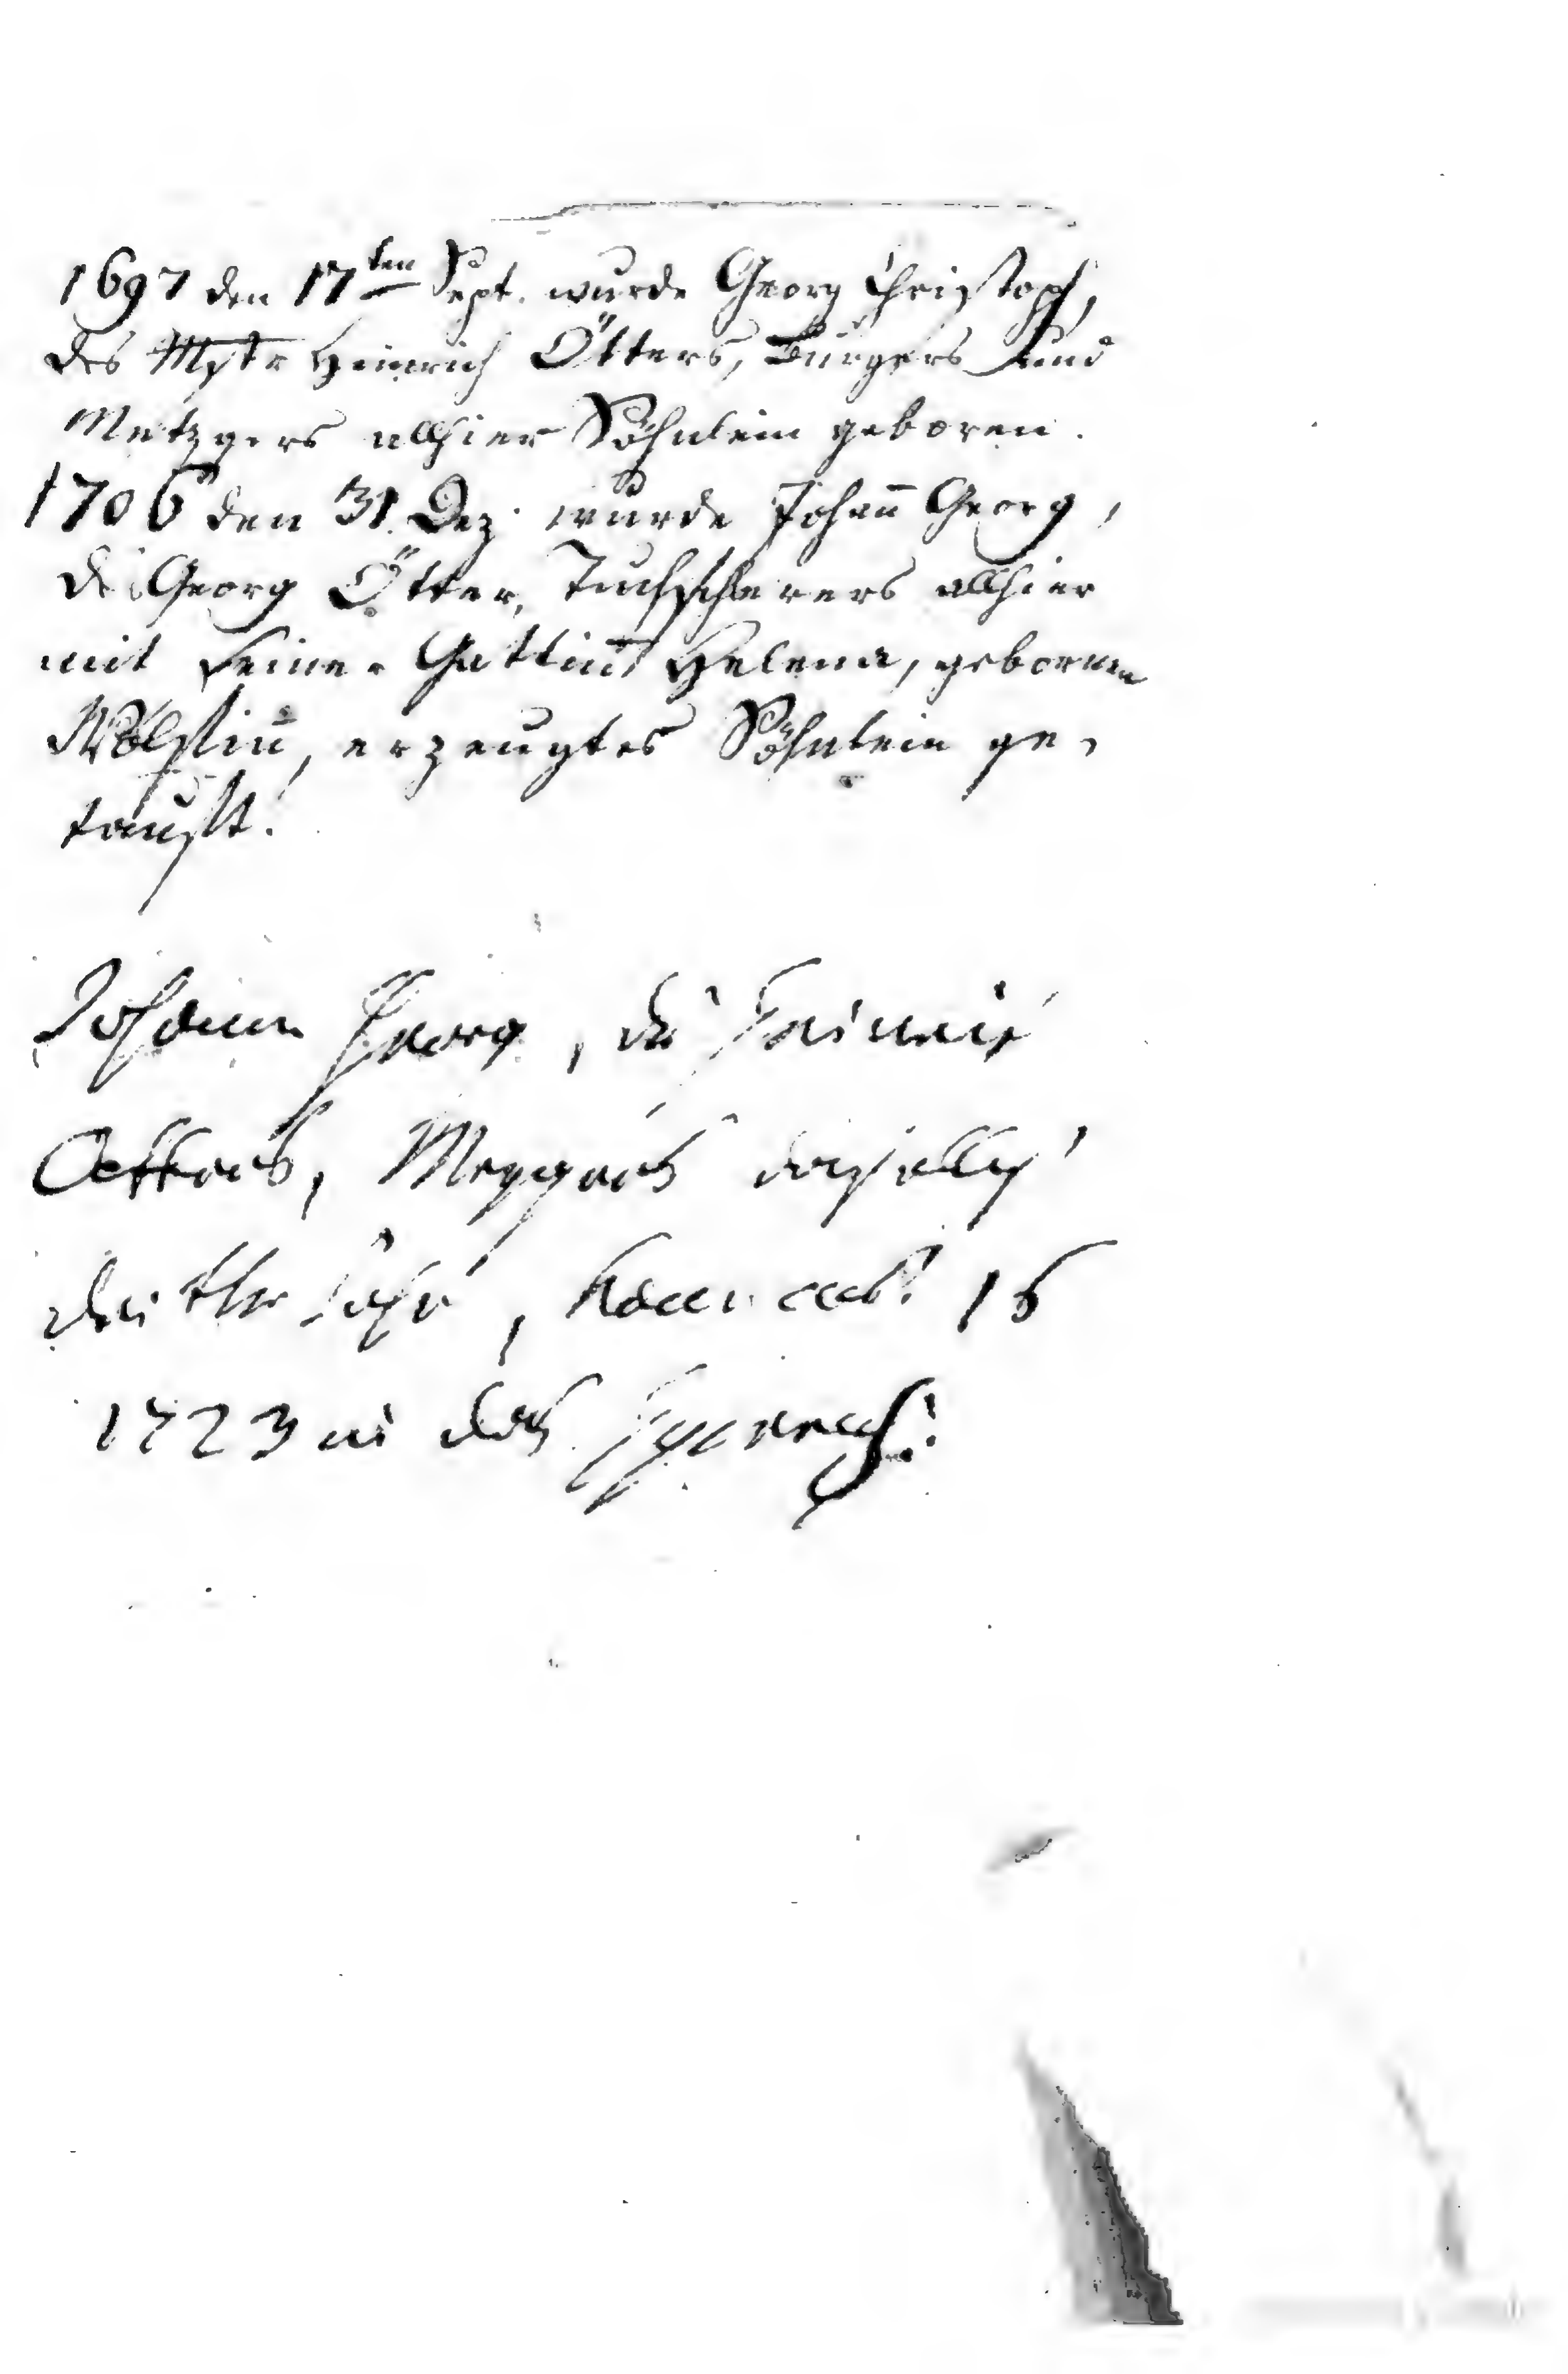 1697 den 17ten Sept. wurde Georg Christoph,
des Mstr Heinrich Ötters, Bürgers und
Metzgers allhier Söhnlein geboren.
1706 den 31. Dez. wurde Johañ Georg,
des Georg Ötter, Tuchscherers allhier
mit seiner Gattiñ Helena, gebornen
Wölfliñ, erzeugtes Söhnlein ge-
tauft.
Johann Georg, des Heinrich
Oetters, Metzgers
1723 in das